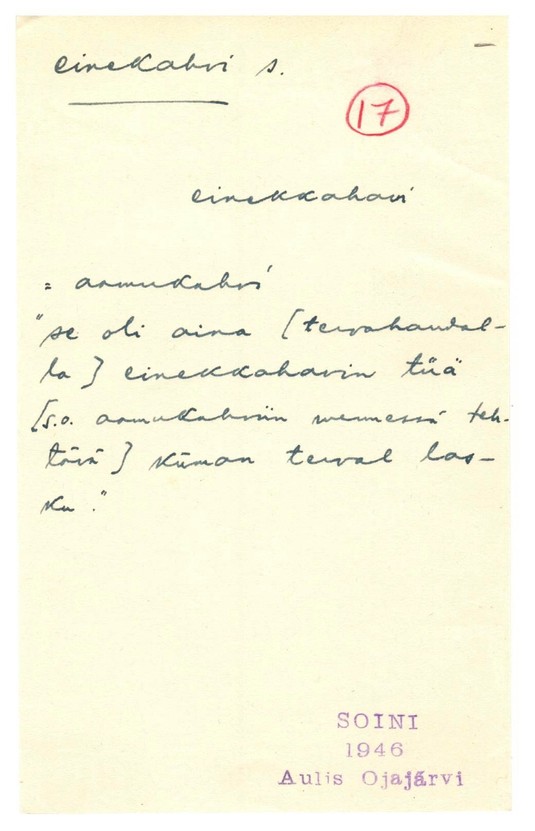 einekahvi s.
17
einekkahavi
= aamukahvi
"se oli aina [tervahaudal-
la] einekkahavin tüä
[s.o. aamukahviin mennessä teh-
tävä] küman terval las-
ku."
SOINI
1946
Aulis Ojajärvi